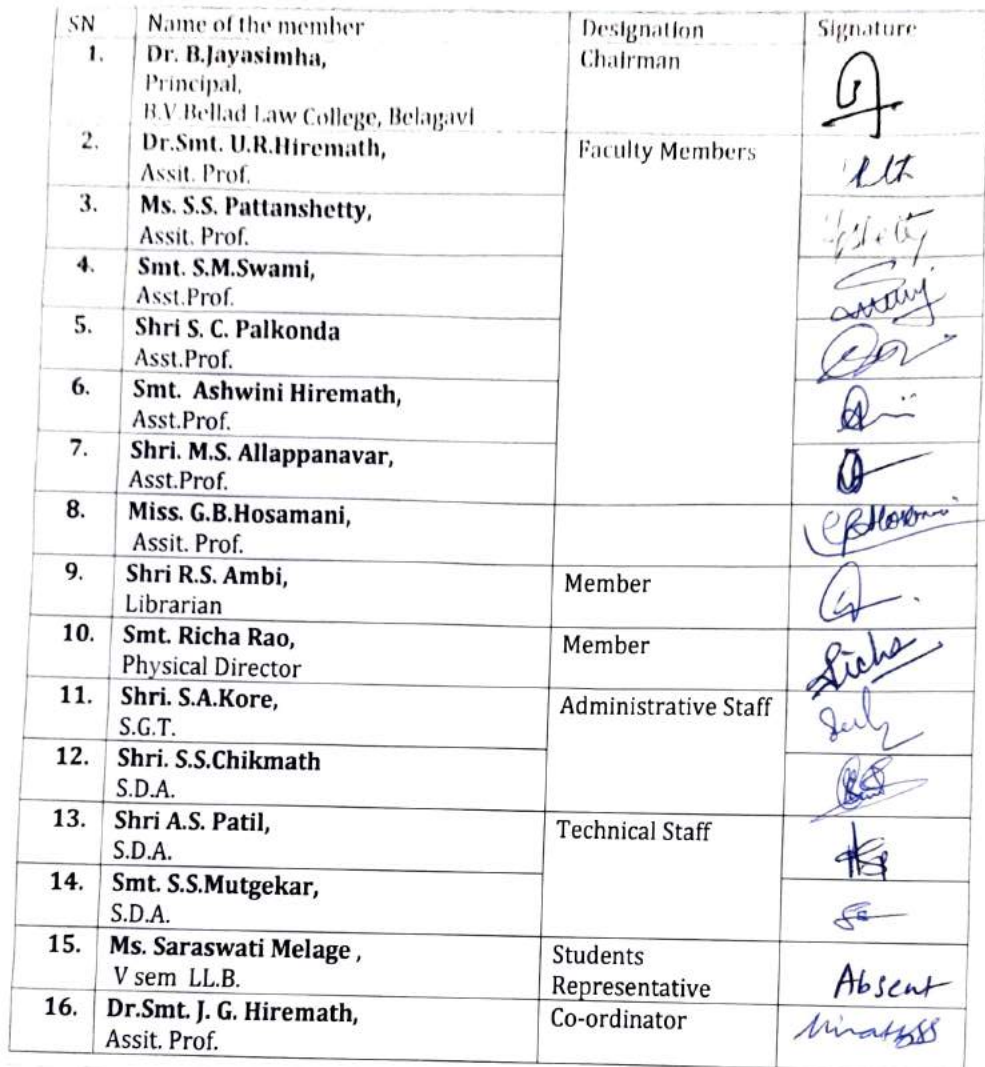 SN Name of the member Designation Signature
1. Dr. B.Jayasimha, Chairman
Principal,
B.V.Bellad Law College, Belagavi
2. Dr.Smt. U.R.Hiremath, Faculty Members
Assit. Prof.
3. Ms. S.S. Pattanshetty,
Assit. Prof.
4. Smt. S.M.Swami,
Asst.Prof.
5. Shri S. C. Palkonda
Asst.Prof.
6. Smt. Ashwini Hiremath,
Asst.Prof.
7. Shri. M.S. Allappanavar,
Asst.Prof.
8. Miss. G.B.Hosamani,
Assit. Prof.
9. Shri R.S. Ambi, Member
Librarian
10. Smt. Richa Rao, Member
Physical Director Richa
11. Shri. S.A.Kore, Administrative Staff
S.G.T.
12. Shri. S.S.Chikmath
S.D.A.
13. Shri A.S. Patil, Technical Staff
S.D.A.
14. Smt. S.S.Mutgekar,
S.D.A.
15. Ms. Saraswati Melage , Students
V sem LL.B. Representative Absent
16. Dr.Smt. J. G. Hiremath, Co-ordinator
Assit. Prof.